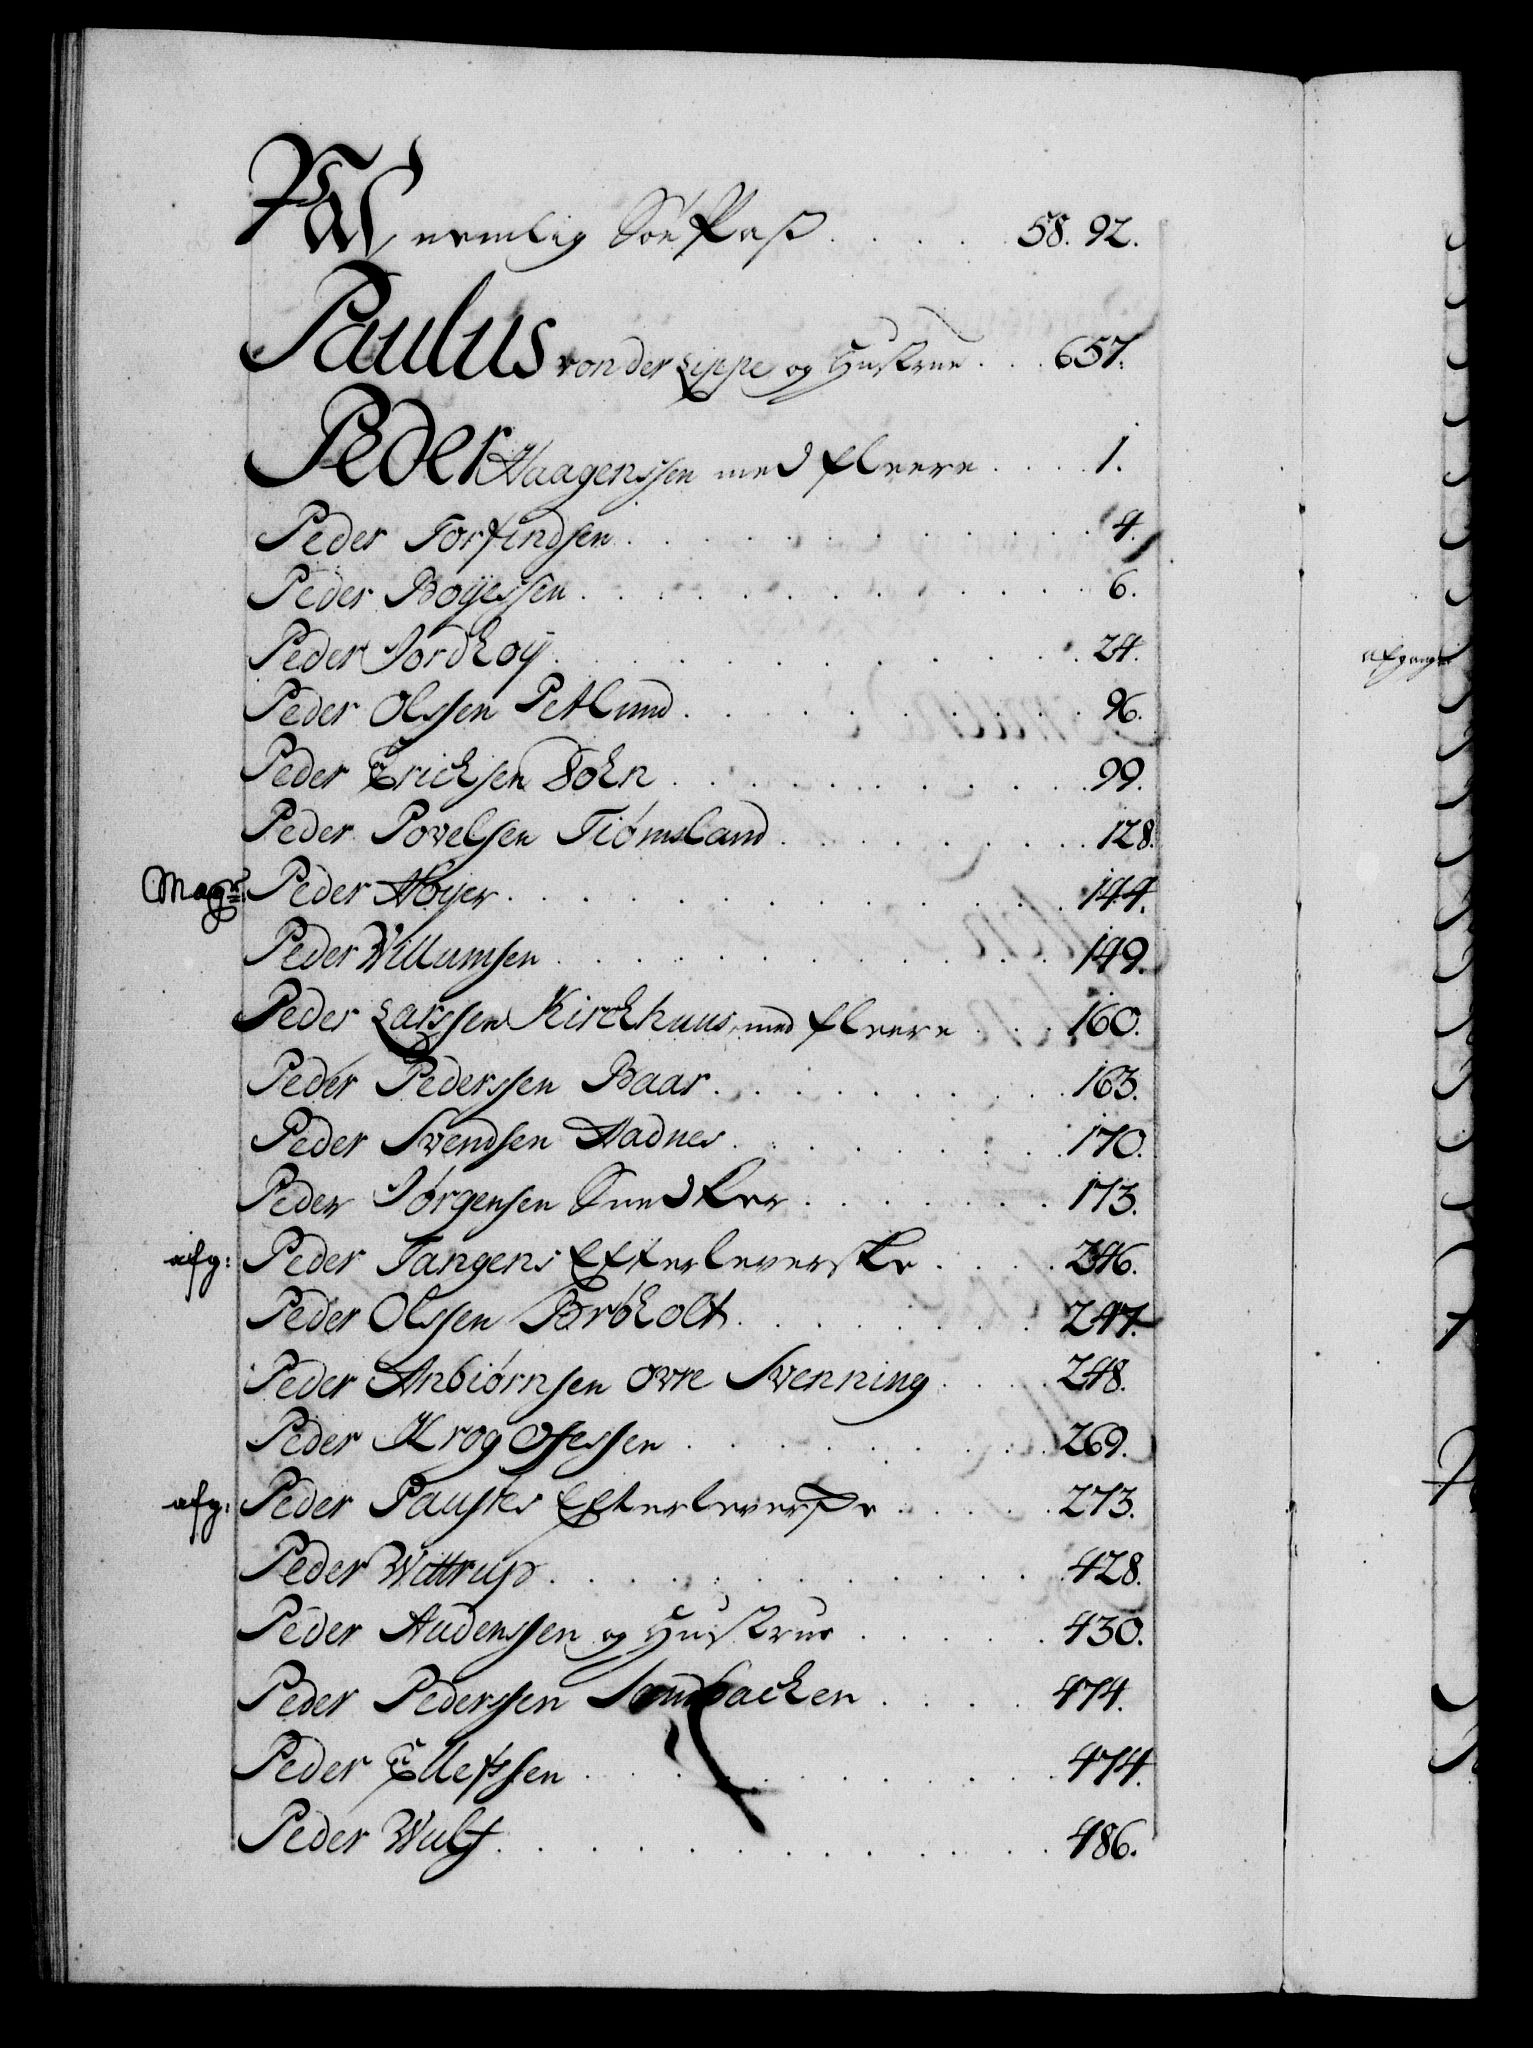 Pas, nemlig Söe Pass . . . . 58. 92.
Paulus von der Lippe og Hustrue . . . 657.
Peder Haagenssen med fleere . . . . 1.
Peder Torfindsen . . . . 4.
Peder Boyessen . . . . 6.
Peder Jordhoÿ . . . . 24.
Peder Olssen Petlund . . . . 96.
Peder Erichsen Dohn . . . . 99.
Peder Povelsen Tiømsland . . . . 128.
Magr: Peder Høyer . . . . 144.
Peder Willumsen . . . . 149.
Peder Larssen Kirckhuus, med fleere . . . 160.
Peder Pederssen Baar . . . . 163.
Peder Svendsen Aadnes . . . . 170.
Peder Jørgensen Snedker . . . . 173.
afg: Peder Tangens Efterleverske . . . . 246.
Peder Olssen Brøholt . . . . 247.
Peder Anbiørnsen ovre Svenning . . . . 248.
Peder Krog Ofessen . . . . 269.
afg: Peder Paustes Efterleverske . . . . 273.
Peder Wittrup . . . . 428.
Peder Audenssen og Hustrue . . . . 430.
Peder Pederssen Sandbacken . . . . 474.
Peder Ellefssen . . . . 474.
Peder Wulf . . . . 486.
afgang